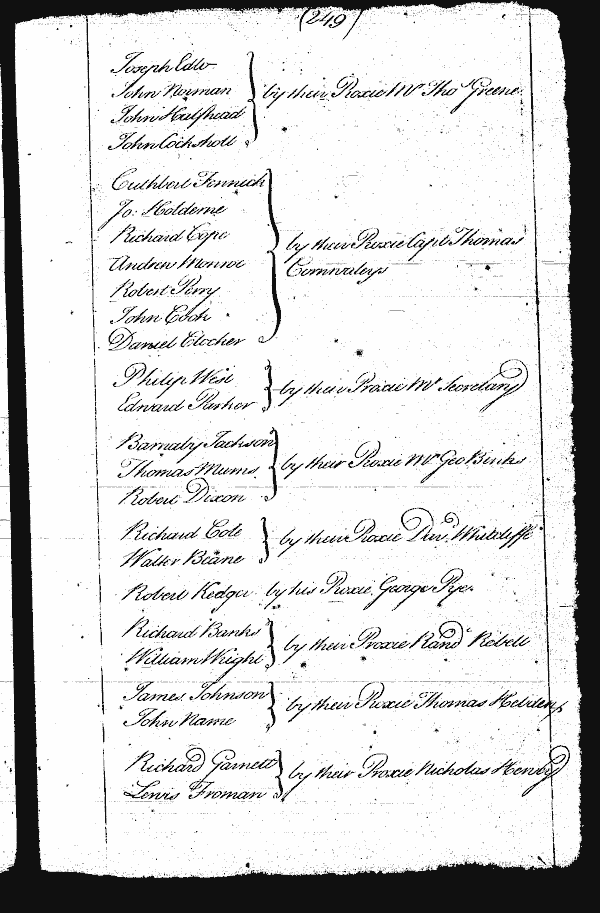 (249)
Joseph Edlo
John Norman } by their Proxie Mr Thos Greene.
John Halfhead
John Cockshott
Cuthbert Fennick
Jo: Holderne
Richard Cope } by their Proxie Capt Thomas
Andrew Monroe Cornwaleys
Robert Perry
John Cook
Daniel Clocher
Philip West } by their Proxie Mr Secretary
Edward Parker
Barnaby Jackson
Thomas Mums } by their Proxie Mr Geo Binks
Robert Dixon
Richard Cole } by their Proxie Whitcliffe
Walter Beane
Robert Kedger by his Proxie George Pye.
Richard Banks } by their Proxie Rand Revell
William Wright
James Johnson } by their Proxie Thomas Hebden
John Name
Richard Garnett } by their Proxie Nicholas Henry
Lewis Froman